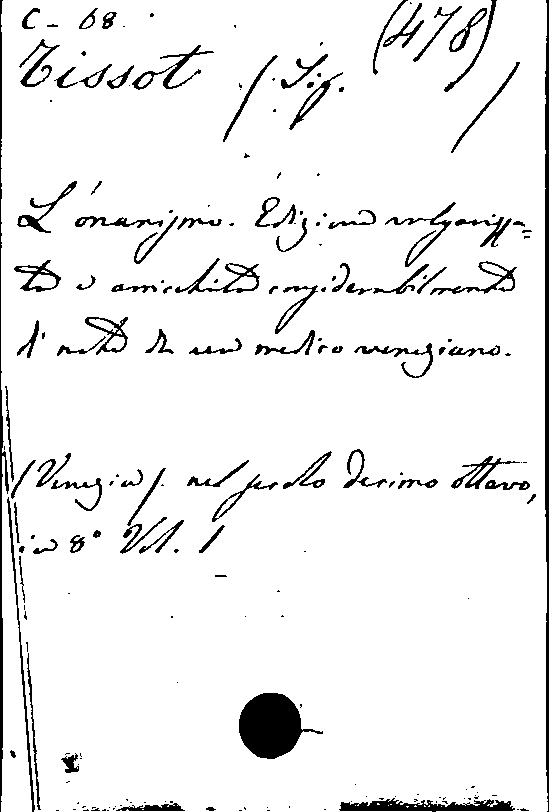 C - 68.
(478)
Tissot / Sig. /
L'onanismo. Edizione volgarizza=
ta e arricchita considerabilmente
di note da un medico veneziano.
(Venezia). nel secolo decimo ottavo,
in 8° Vol. 1